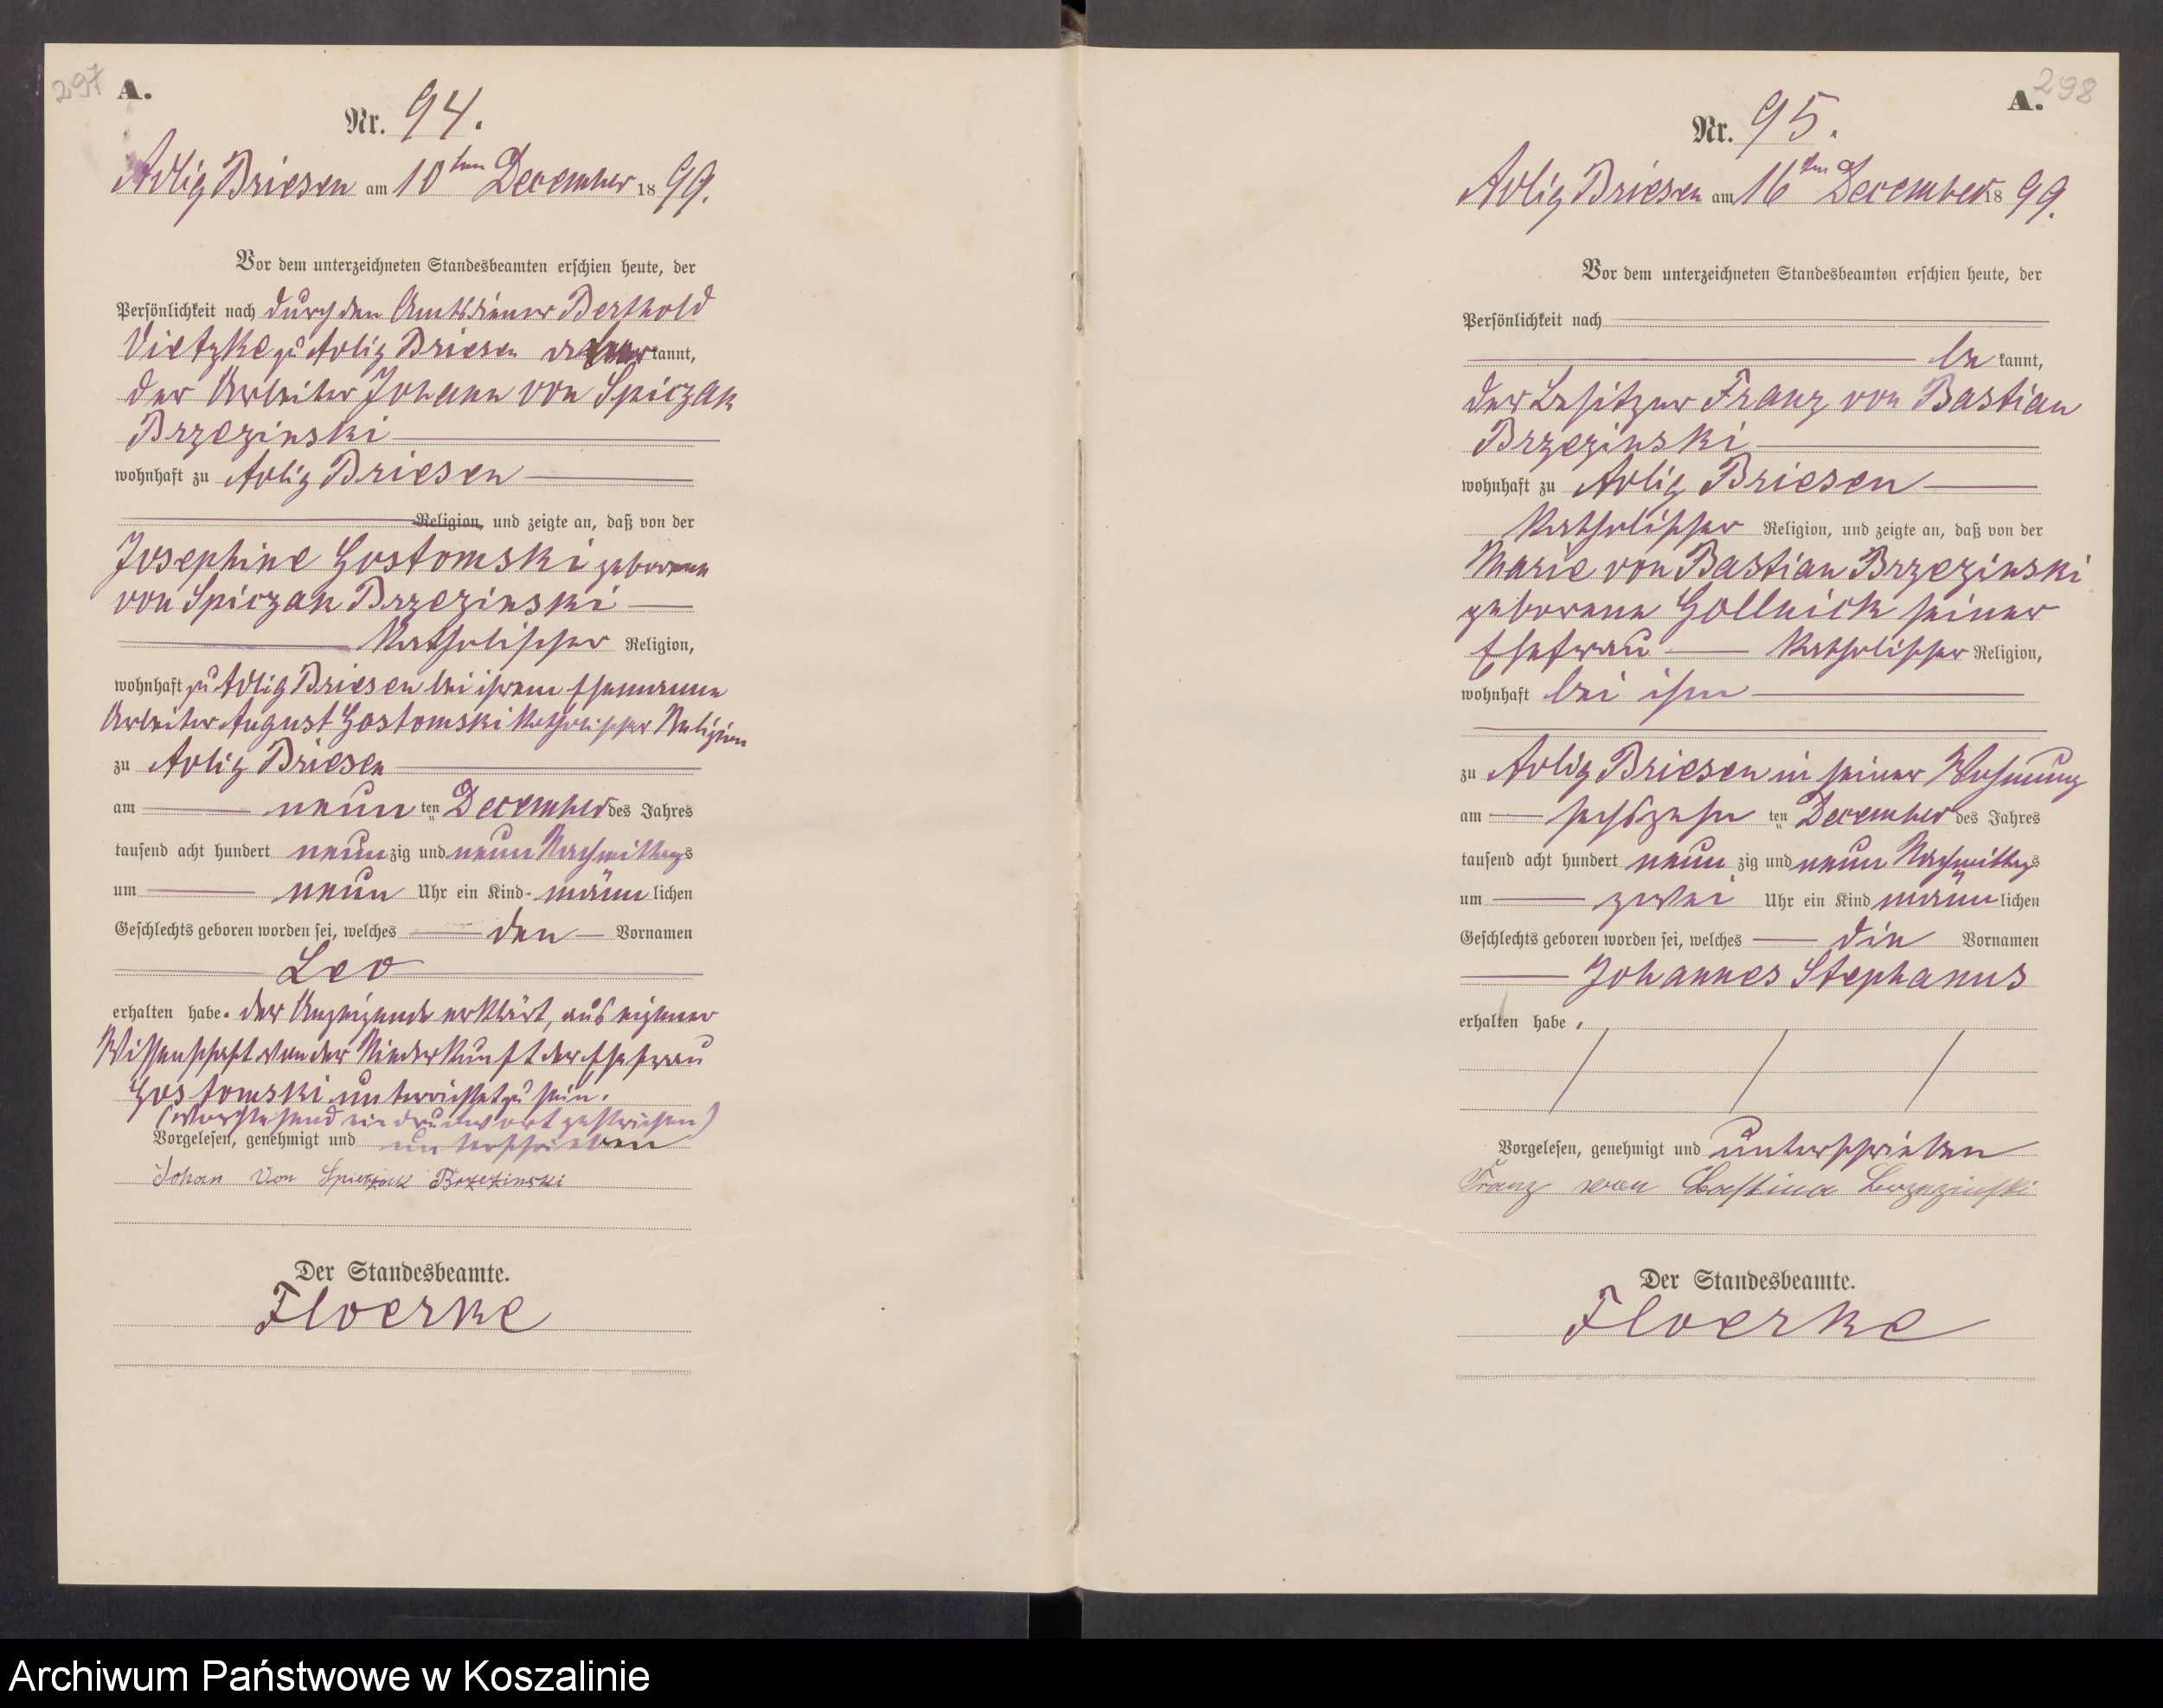 297 A.
Nr. 94.
Adlig Briesen am 10ten December 1899.
Vor dem unterzeichneten Standesbeamten erschien heute, der
Persönlichkeit nach durch den Amtsdiener Berthold
Vietzke zu Adlig Briesen anerkannt,
der Arbeiter Johann von Spiczak
Brzezinski
wohnhaft zu Adlig Briesen
Religion, und zeigte an, daß von der
Josephine Gostomski geborene
von Spiczak Brzezinski
katholischer Religion,
wohnhaft zu Adlig Briesen bei ihrem Ehemanne
Arbeiter August Gostomski katholischer Religion
zu Adlig Briesen
am neun ten December des Jahres
tausend acht hundert neunzig und neun Nachmittags
um neun Uhr ein Kind männlichen
Geschlechts geboren worden sei, welches den Vornamen
Leo
erhalten habe. der Anzeigende erklärt, aus eigener
Wissenschaft von der Niederkunft der Ehefrau
Gostomski unterrichtet zu sein.
(Vorstehend ein Druckwort gestrichen)
Vorgelesen, genehmigt und unterschrieben
Johan Von Brzezinski
Der Standesbeamte.
Floerke
A. 298
Nr. 95.
Adlig Briesen am 16ten December 1899.
Vor dem unterzeichneten Standesbeamten erschien heute, der
Persönlichkeit nach
be kannt,
der Besitzer Franz von Bastian
Brzezinski
wohnhaft zu Adlig Briesen
katholischer Religion, und zeigte an, daß von der
Marie von Bastian Brzezinski
geborene Gollnick seiner
Ehefrau katholischer Religion,
wohnhaft bei ihm
zu Adlig Briesen in seiner Wohnung
am sechszehn ten December des Jahres
tausend acht hundert neun zig und neun Nachmittags
um zwei Uhr ein Kind männlichen
Geschlechts geboren worden sei, welches die Vornamen
Johannes Stephanus
erhalten habe.
Vorgelesen, genehmigt und unterschrieben
Franz von
Der Standesbeamte.
Floerke
Archiwum Państwowe w Koszalinie